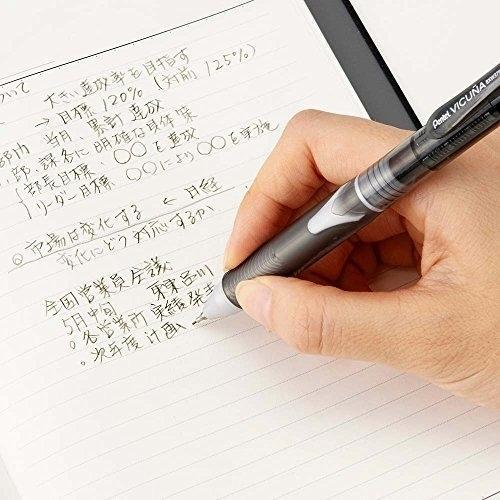 ついて
大きい達成率を目指す
→ 目標 120% (対前 125%)
部内 当月、累計達成
部、課名に明確な具体策
部長目標、○○を達成
リーダー目標 ○○により○○を実施
◎市場は変化する ← 日経
変化にどう対応するか
全国営業員会議
5月中旬 東京品川
○各営業所 実績発表
○次年度計画
Pentel VICUÑA